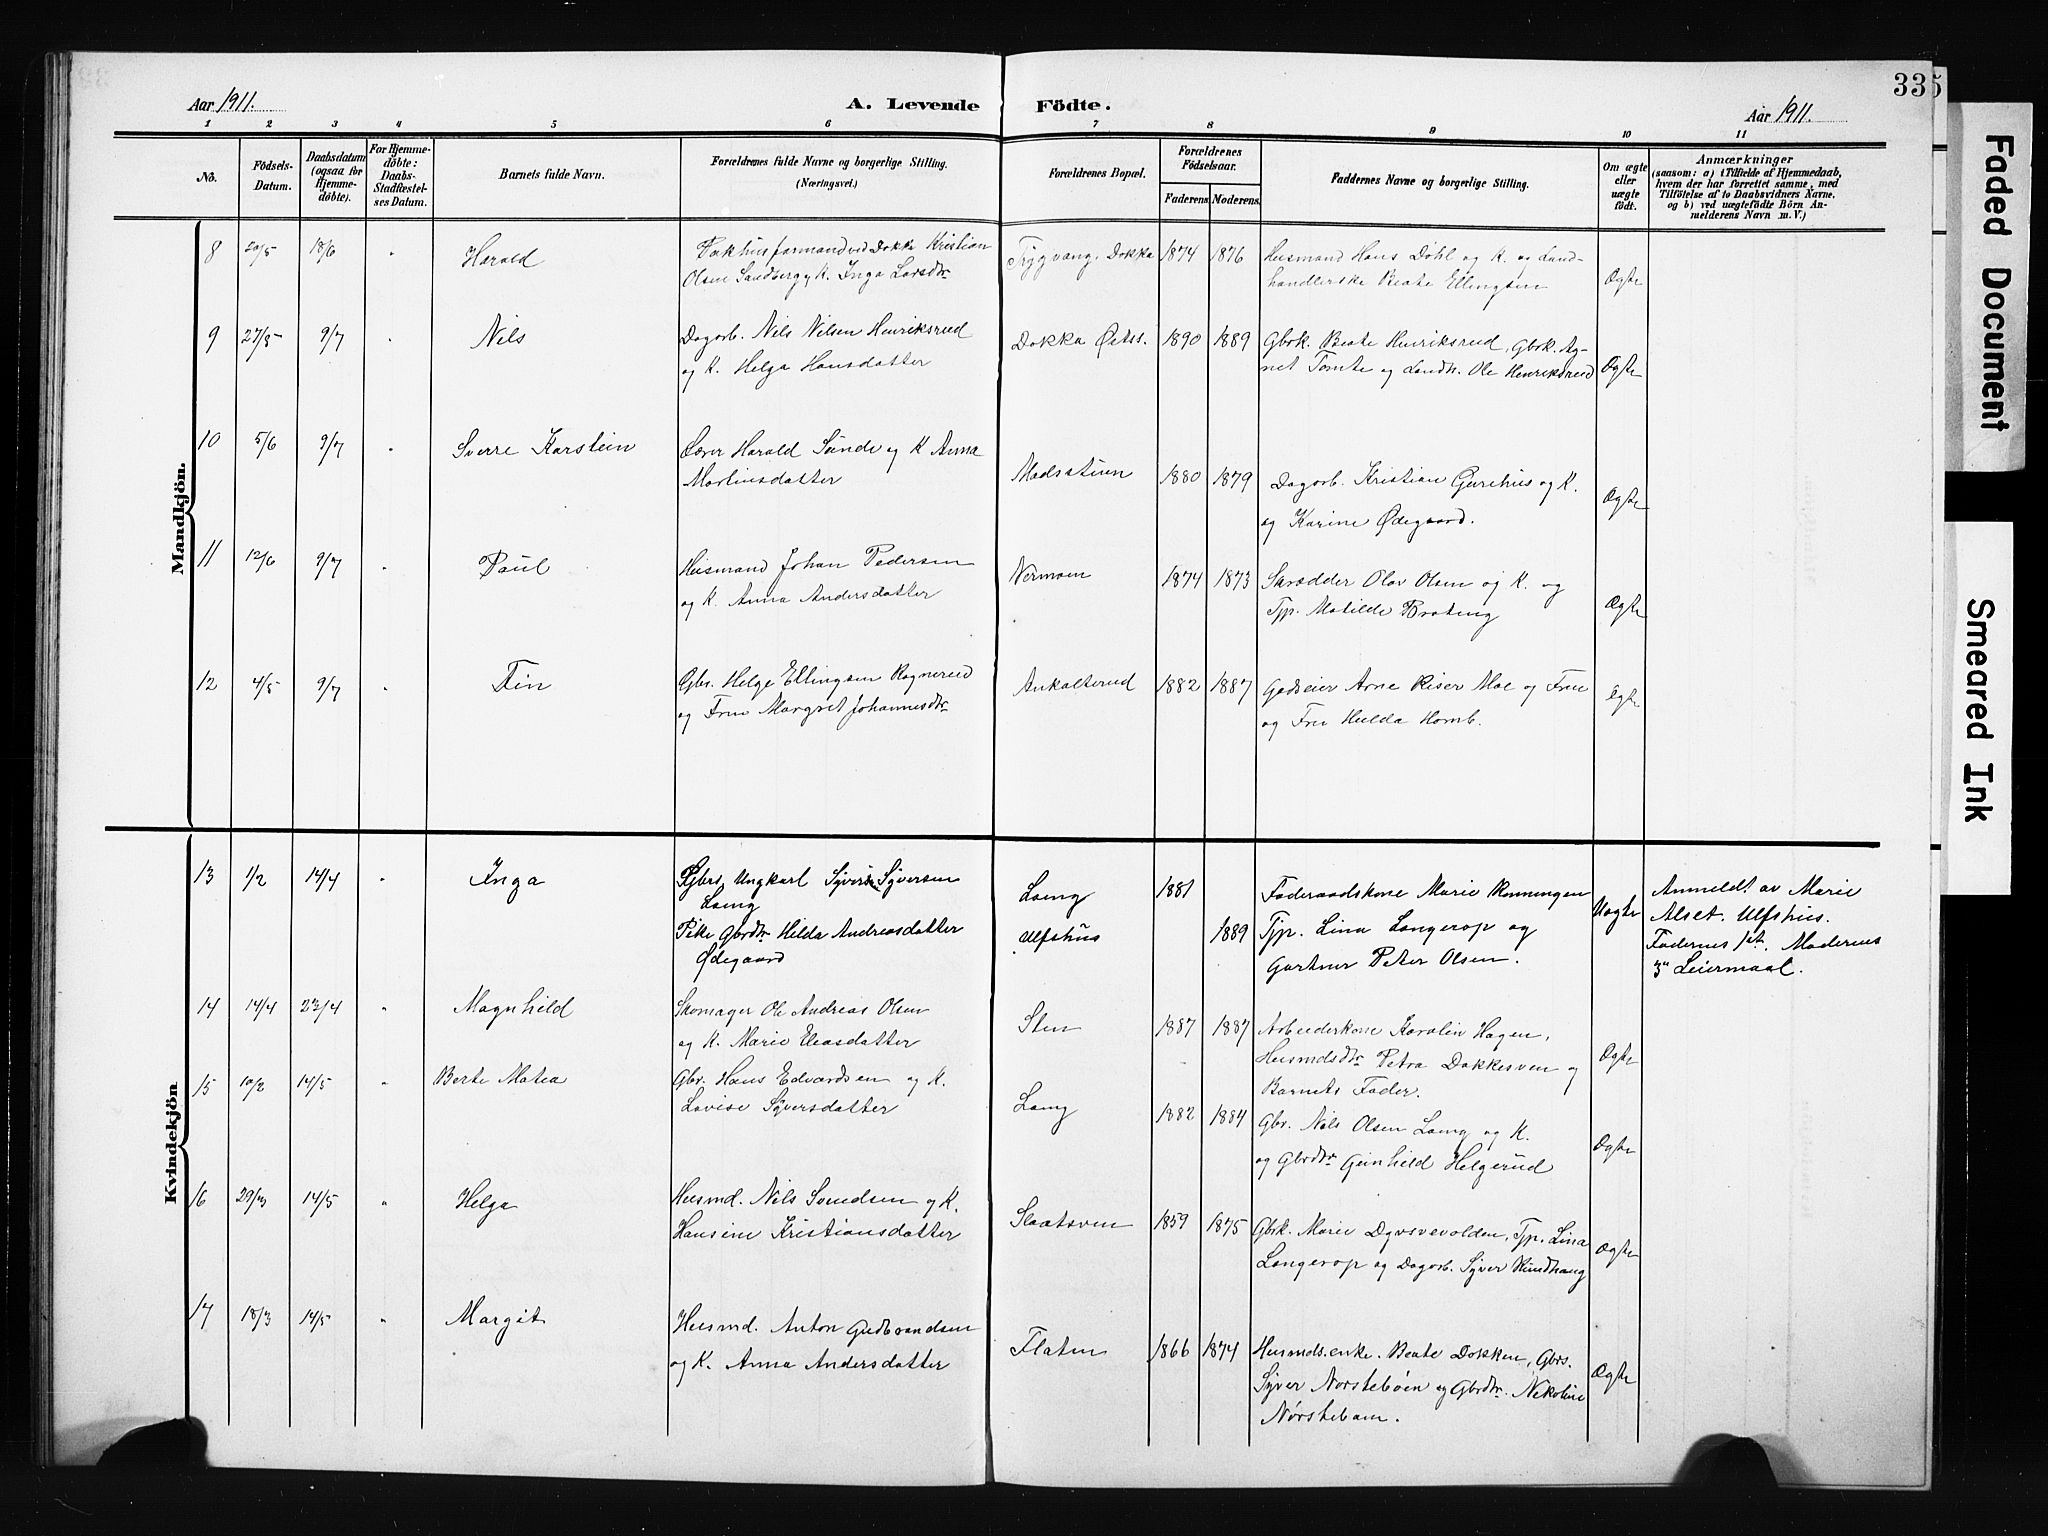 335
Aar 1911.
A. Levende Födte.
Aar 1911.
1 2 3 4 5 6 7 8 9 10 11
No.
Födsels-Datum.
Daabsdatum (ogsaa for Hjemme-døbte).
For Hjemme-døbte: Daabs-Stadfæstel-ses Datum.
Barnets fulde Navn.
Forældrenes fulde Navne og borgerlige Stilling.
(Næringsvei.)
Forældrenes Bopæl.
Forældrenes Födselsaar.
Faderens Moderens.
Faddernes Navne og borgerlige Stilling.
Om ægte eller uægte födt.
Anmærkninger
(saasom: a) i Tilfælde af Hjemmedaab, hvem der har forrettet samme, med Tilföielse af to Daabsvidners Navne, og b) ved uægtefödte Börn An-melderens Navn m. V.)
Mandkjön.
8 20/5 18/6 " Harald Pakhusformand ved Dokka Kristian Trygvang, Dokka 1874 1876 Husmand Hans Döhl og K. og Land-
Olsen Sandberg og K. Inga Larsdtr handlerske Beate Ellingsen Ægte
9 27/5 9/7 " Nils Dagarb. Nils Nilsen Henriksrud Dokka Østss. 1890 1889 Gbrk. Beate Henriksrud, Gbrk. Ag-
og K. Helga Hansdatter net Tomte og Landh. Ole Henriksrud Ægte
10 5/6 9/7 " Sverre Karstein Harald Sünde og K Anna
Martinsdatter Madsstuen 1880 1879 Dagarb. Kristian Gurihus og K.
og Karine Ødegaard. Ægte
11 12/6 9/7 " Paul Husmand Johan Pedersen Nermoen 1874 1873 Skrædder Olav Olsen og K. og
og K. Anna Andersdatter Tjp. Matilde Brateng Ægte
12 4/5 9/7 " Fin Gbr. Helge Ellingsen Rognerud Ankalterud 1882 1887 Godseier Arne Riser Moe og Frue
og Frue Margret Johannesdtr og Fru Hulda Homb. Ægte
Kvindekjön
13 1/2 14/4 " Inga Gbrs. Ungkarl Syver Syversen Lomg 1881 Føderaadskone Marie Rønningen Uægte Anmeldt av Marie
Lomg
Pike Gbrdtr Hilda Andreasdatter Ulfshus 1889 Tjp. Lina Langerop og Alset. Ulfshus.
Ødegaard Gartner Peter Olsen. Faderens 1st. Moderens
3" Leiermaal.
14 14/4 23/4 " Magnhild Skomager Ole Andreas Olsen Sten 1887 1887 Arbeiderkone Karolin Hagen,
og K. Marie Eleasdatter Husmdsdtr Petra Dokkesven og Ægte
Barnets Fader.
15 10/2 14/5 " Berte Matea Gbr. Hans Edvardsen og K.
Lovise Syversdatter Lomg 1882 1884 Gbr. Nils Olsen Lomg og K.
og Gbrdtr Gunhild Helgerud Ægte
16 29/3 14/5 " Helga Husmd. Nils Svendsen og K.
Hansine Kristiansdatter Slaatsven 1859 1875 Gbrk. Marie Dyvsvevolden, Tjp. Lina
Langerop og Dagarb. Syver Rundhaug Ægte
17 18/3 14/5 " Margit Husmd. Anton Gudbrandsen
og K. Anna Andersdatter Flaten 1866 1874 Husmds.enke. Beate Dokken, Gbrs.
Syver Nørsteböen og Gbrdtr. Nekoline Ægte
Nørsteböen.
Faded Document
Smeared Ink